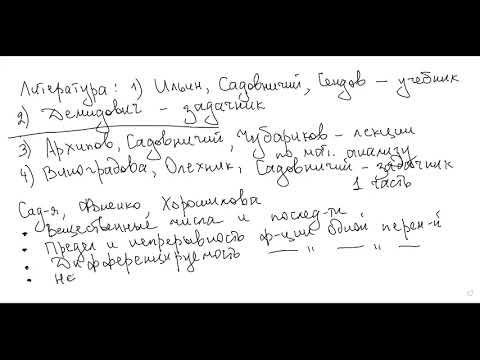 Литература: 1) Ильин, Садовничий, Сендов – учебник
2) Демидович – задачник
3) Архипов, Садовничий, Чубариков – лекции
по мат. анализу
4) Виноградова, Олехник, Садовничий – задачник
1 часть
Сад-я, Фоменко, Хорошилова
• Вещественные числа и послед-ти
• Предел и непрерывность ф-ции одной перем-й
• Дифференцируемость — " — " —
• Не